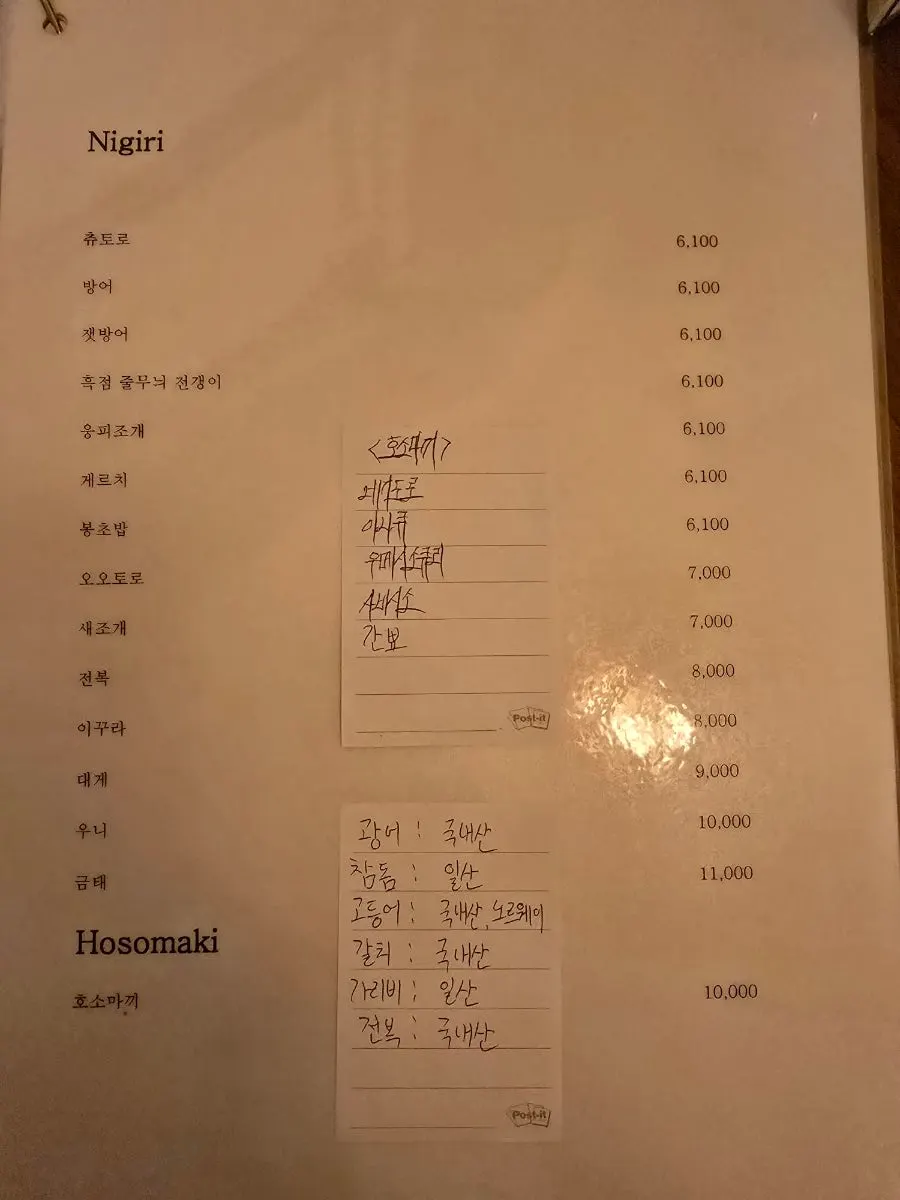 Nigiri
츄토로 6,100
방어 6,100
잿방어 6,100
흑점 줄무늬 전갱이 6,100
웅피조개 6,100
게르치 6,100
봉초밥 6,100
오오토로 7,000
새조개 7,000
전복 8,000
이꾸라 8,000
대게 9,000
우니 10,000
금태 11,000
Hosomaki
호소마끼 10,000
<호소마끼>
네기도로
아나큐
우메시소큐리
사바시소
간뾰
Post-it
광어 : 국내산
참돔 : 일산
고등어 : 국내산, 노르웨이
갈치 : 국내산
가리비 : 일산
전복 : 국내산
Post-it